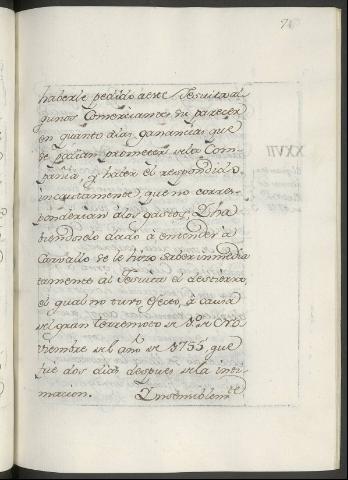 haberle pedido a este Jesuita al
gunos Comerciantes su parecer
en quanto a las ganancias que
se podian prometer de la Com-
pañia, y haber el respondido
incautamente, que no corres-
ponderian a los gastos, Y ha
biendoselo dado à entender a
Carvallo se le hizo saber inmedia
tamente al Jesuita el destierro,
el qual no tuvo efecto, à causa
del gran terremoto de 1.º de No
viembre del año de 1755, que
fue dos dias despues de la inti-
macion. Ynsensiblem.te
XXVII